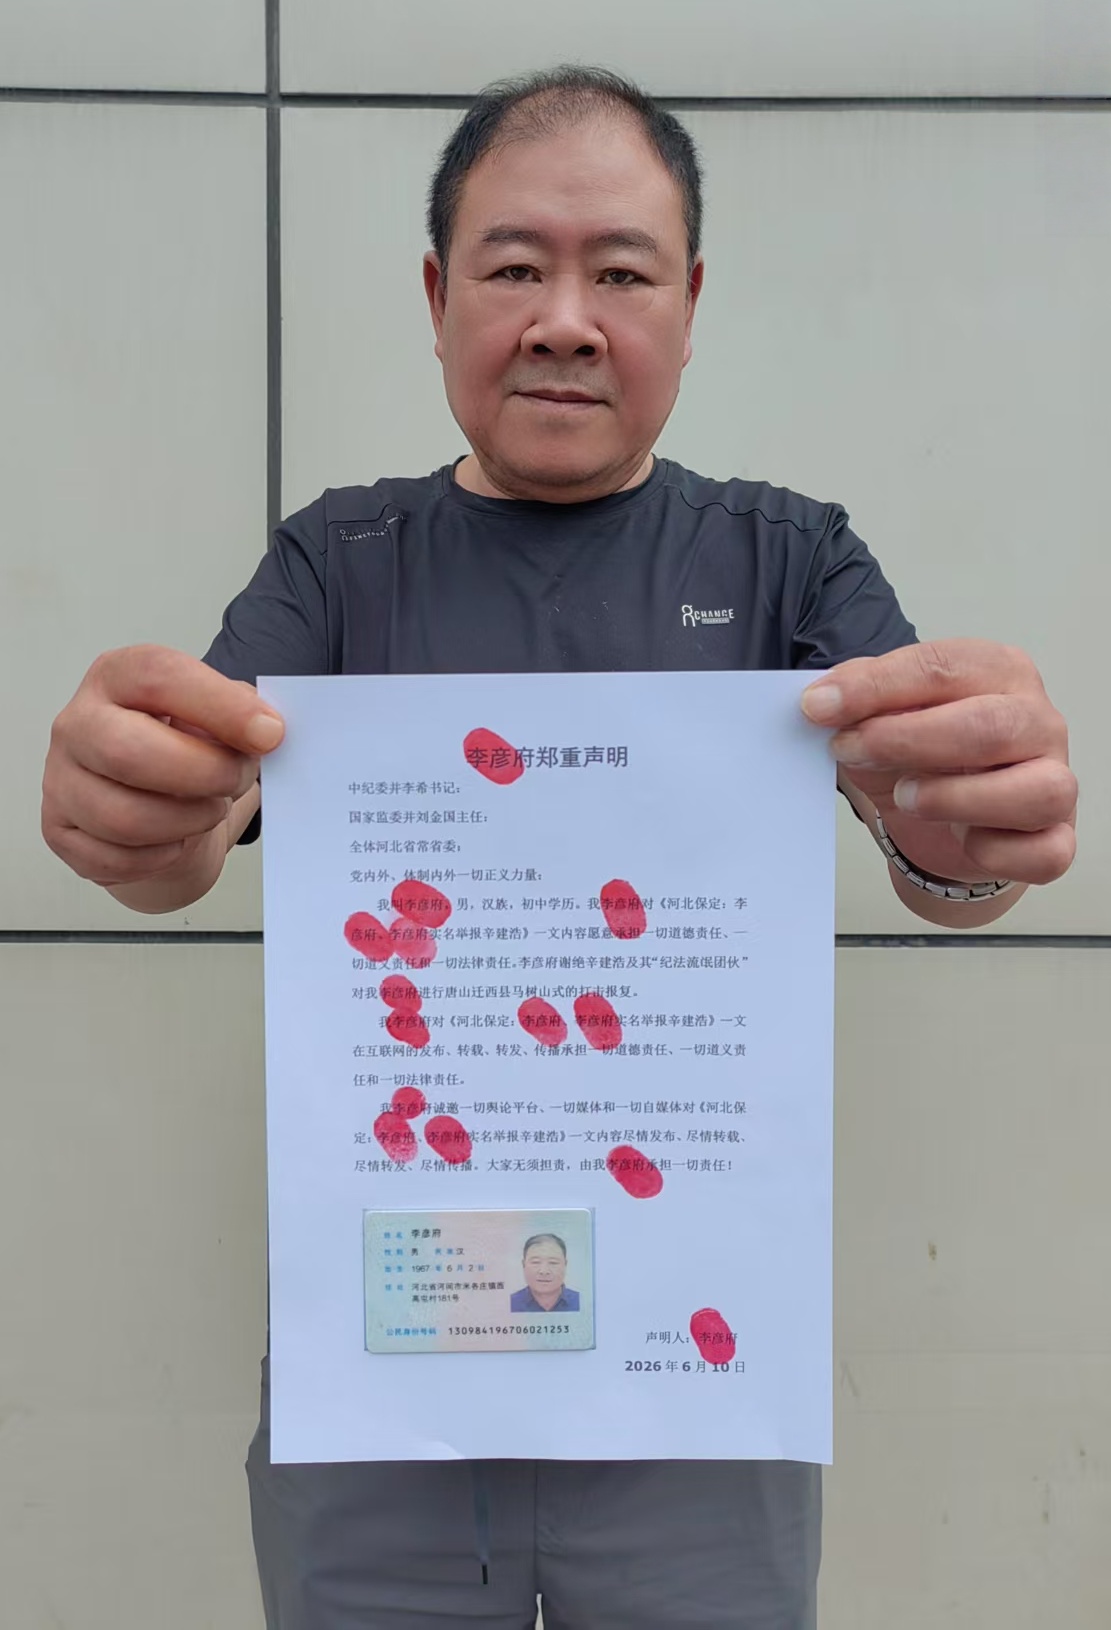 CHANGE
李彦府郑重声明
中纪委并李希书记：
国家监委并刘金国主任：
全体河北省常省委：
党内外、体制内外一切正义力量：
我叫李彦府，男，汉族，初中学历。我李彦府对《河北保定：李
彦府、李彦府实名举报辛建浩》一文内容愿意承担一切道德责任、一
切道义责任和一切法律责任。李彦府谢绝辛建浩及其“纪法流氓团伙”
对我李彦府进行唐山迁西县马树山式的打击报复。
我李彦府对《河北保定：李彦府、李彦府实名举报辛建浩》一文
在互联网的发布、转载、转发、传播承担一切道德责任、一切道义责
任和一切法律责任。
我李彦府诚邀一切舆论平台、一切媒体和一切自媒体对《河北保
定：李彦府、李彦府实名举报辛建浩》一文内容尽情发布、尽情转载、
尽情转发、尽情传播。大家无须担责，由我李彦府承担一切责任！
姓名 李彦府
性别 男 民族 汉
出生 1967 年 6 月 2 日
住址 河北省河间市米各庄镇西
高屯村181号
公民身份号码 130984196706021253
声明人：李彦府
2026 年 6 月 10 日